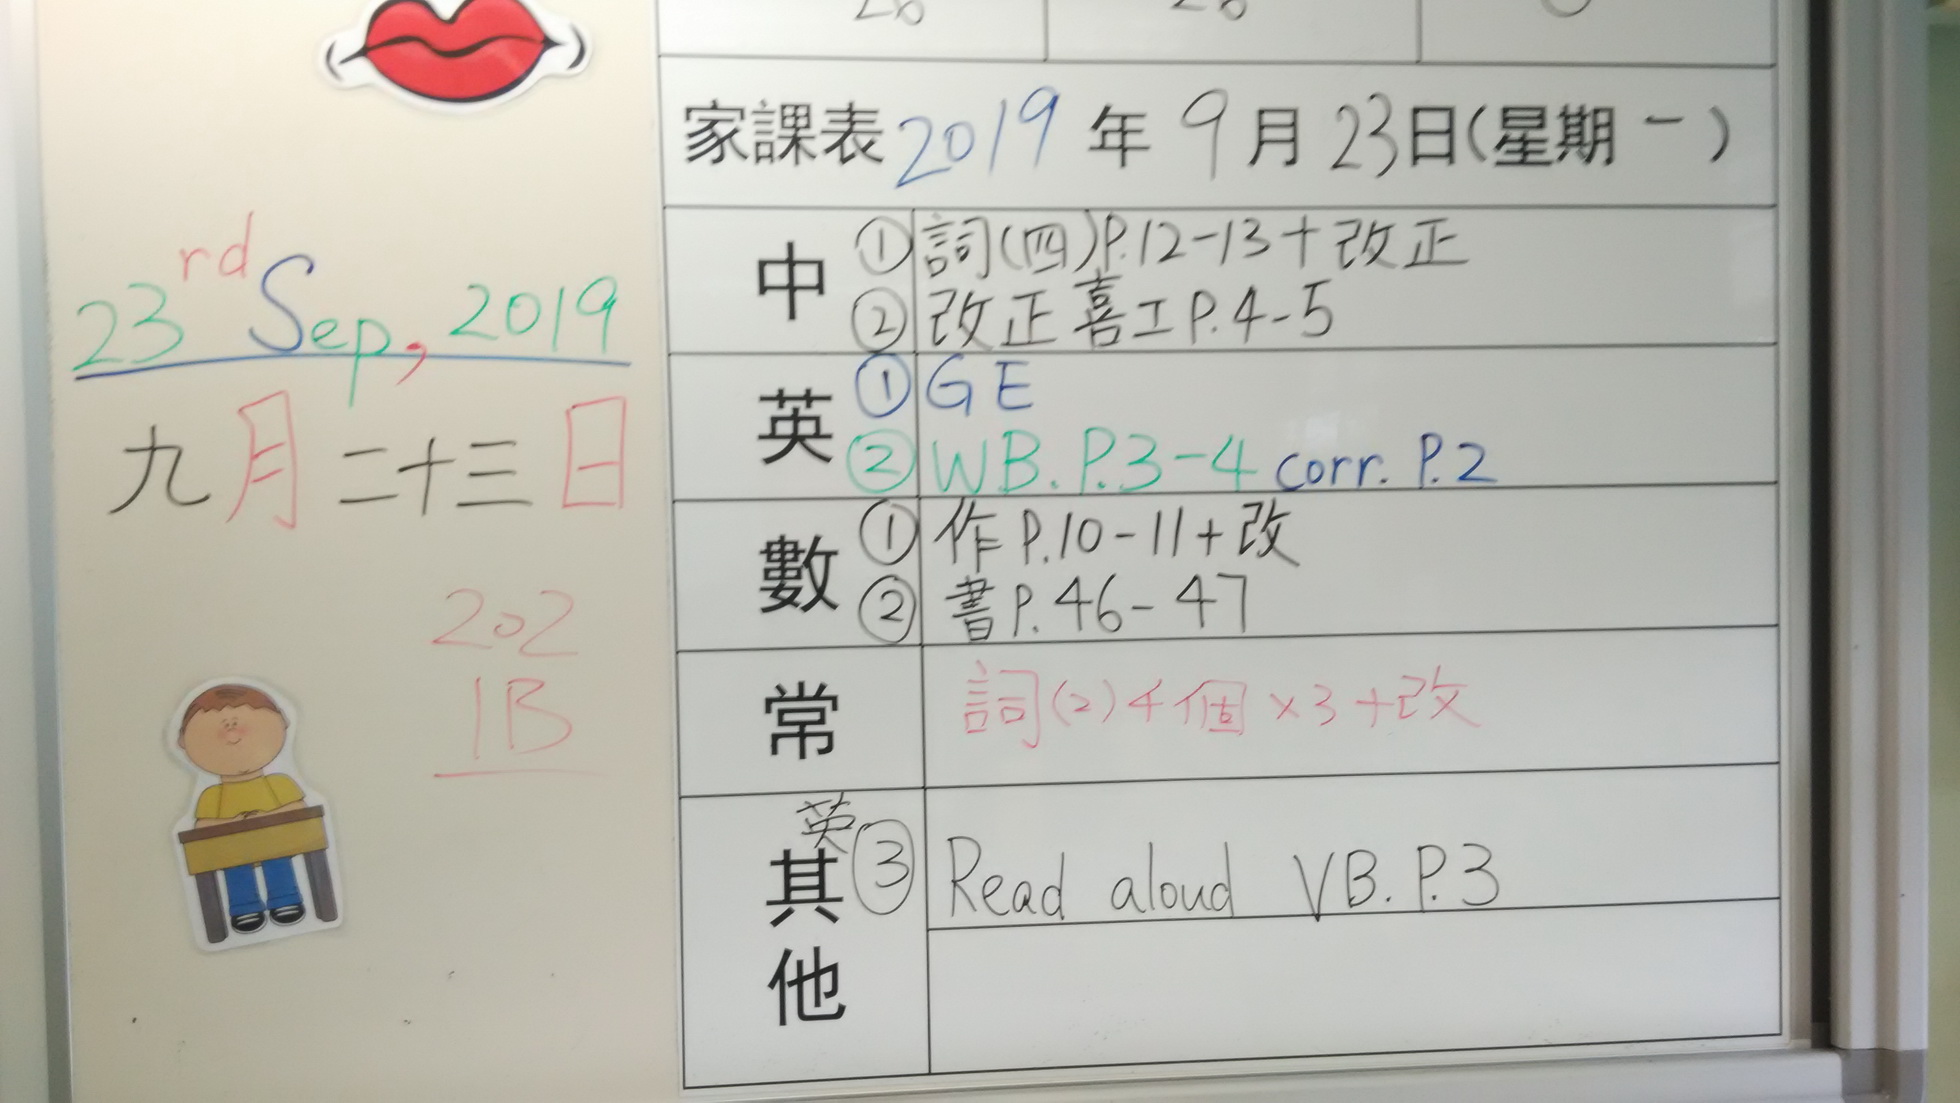 家課表 2019 年 9 月 23 日(星期 一 )
23rd Sep, 2019
九月二十三日
202
1B
中
① 詞(四)P.12-13+改正
② 改正 喜工P.4-5
英
① GE
② WB. P.3-4 corr. P.2
數
① 作P.10-11+改
② 書P.46-47
常
詞(2)4個×3+改
其他
英③ Read aloud VB. P.3